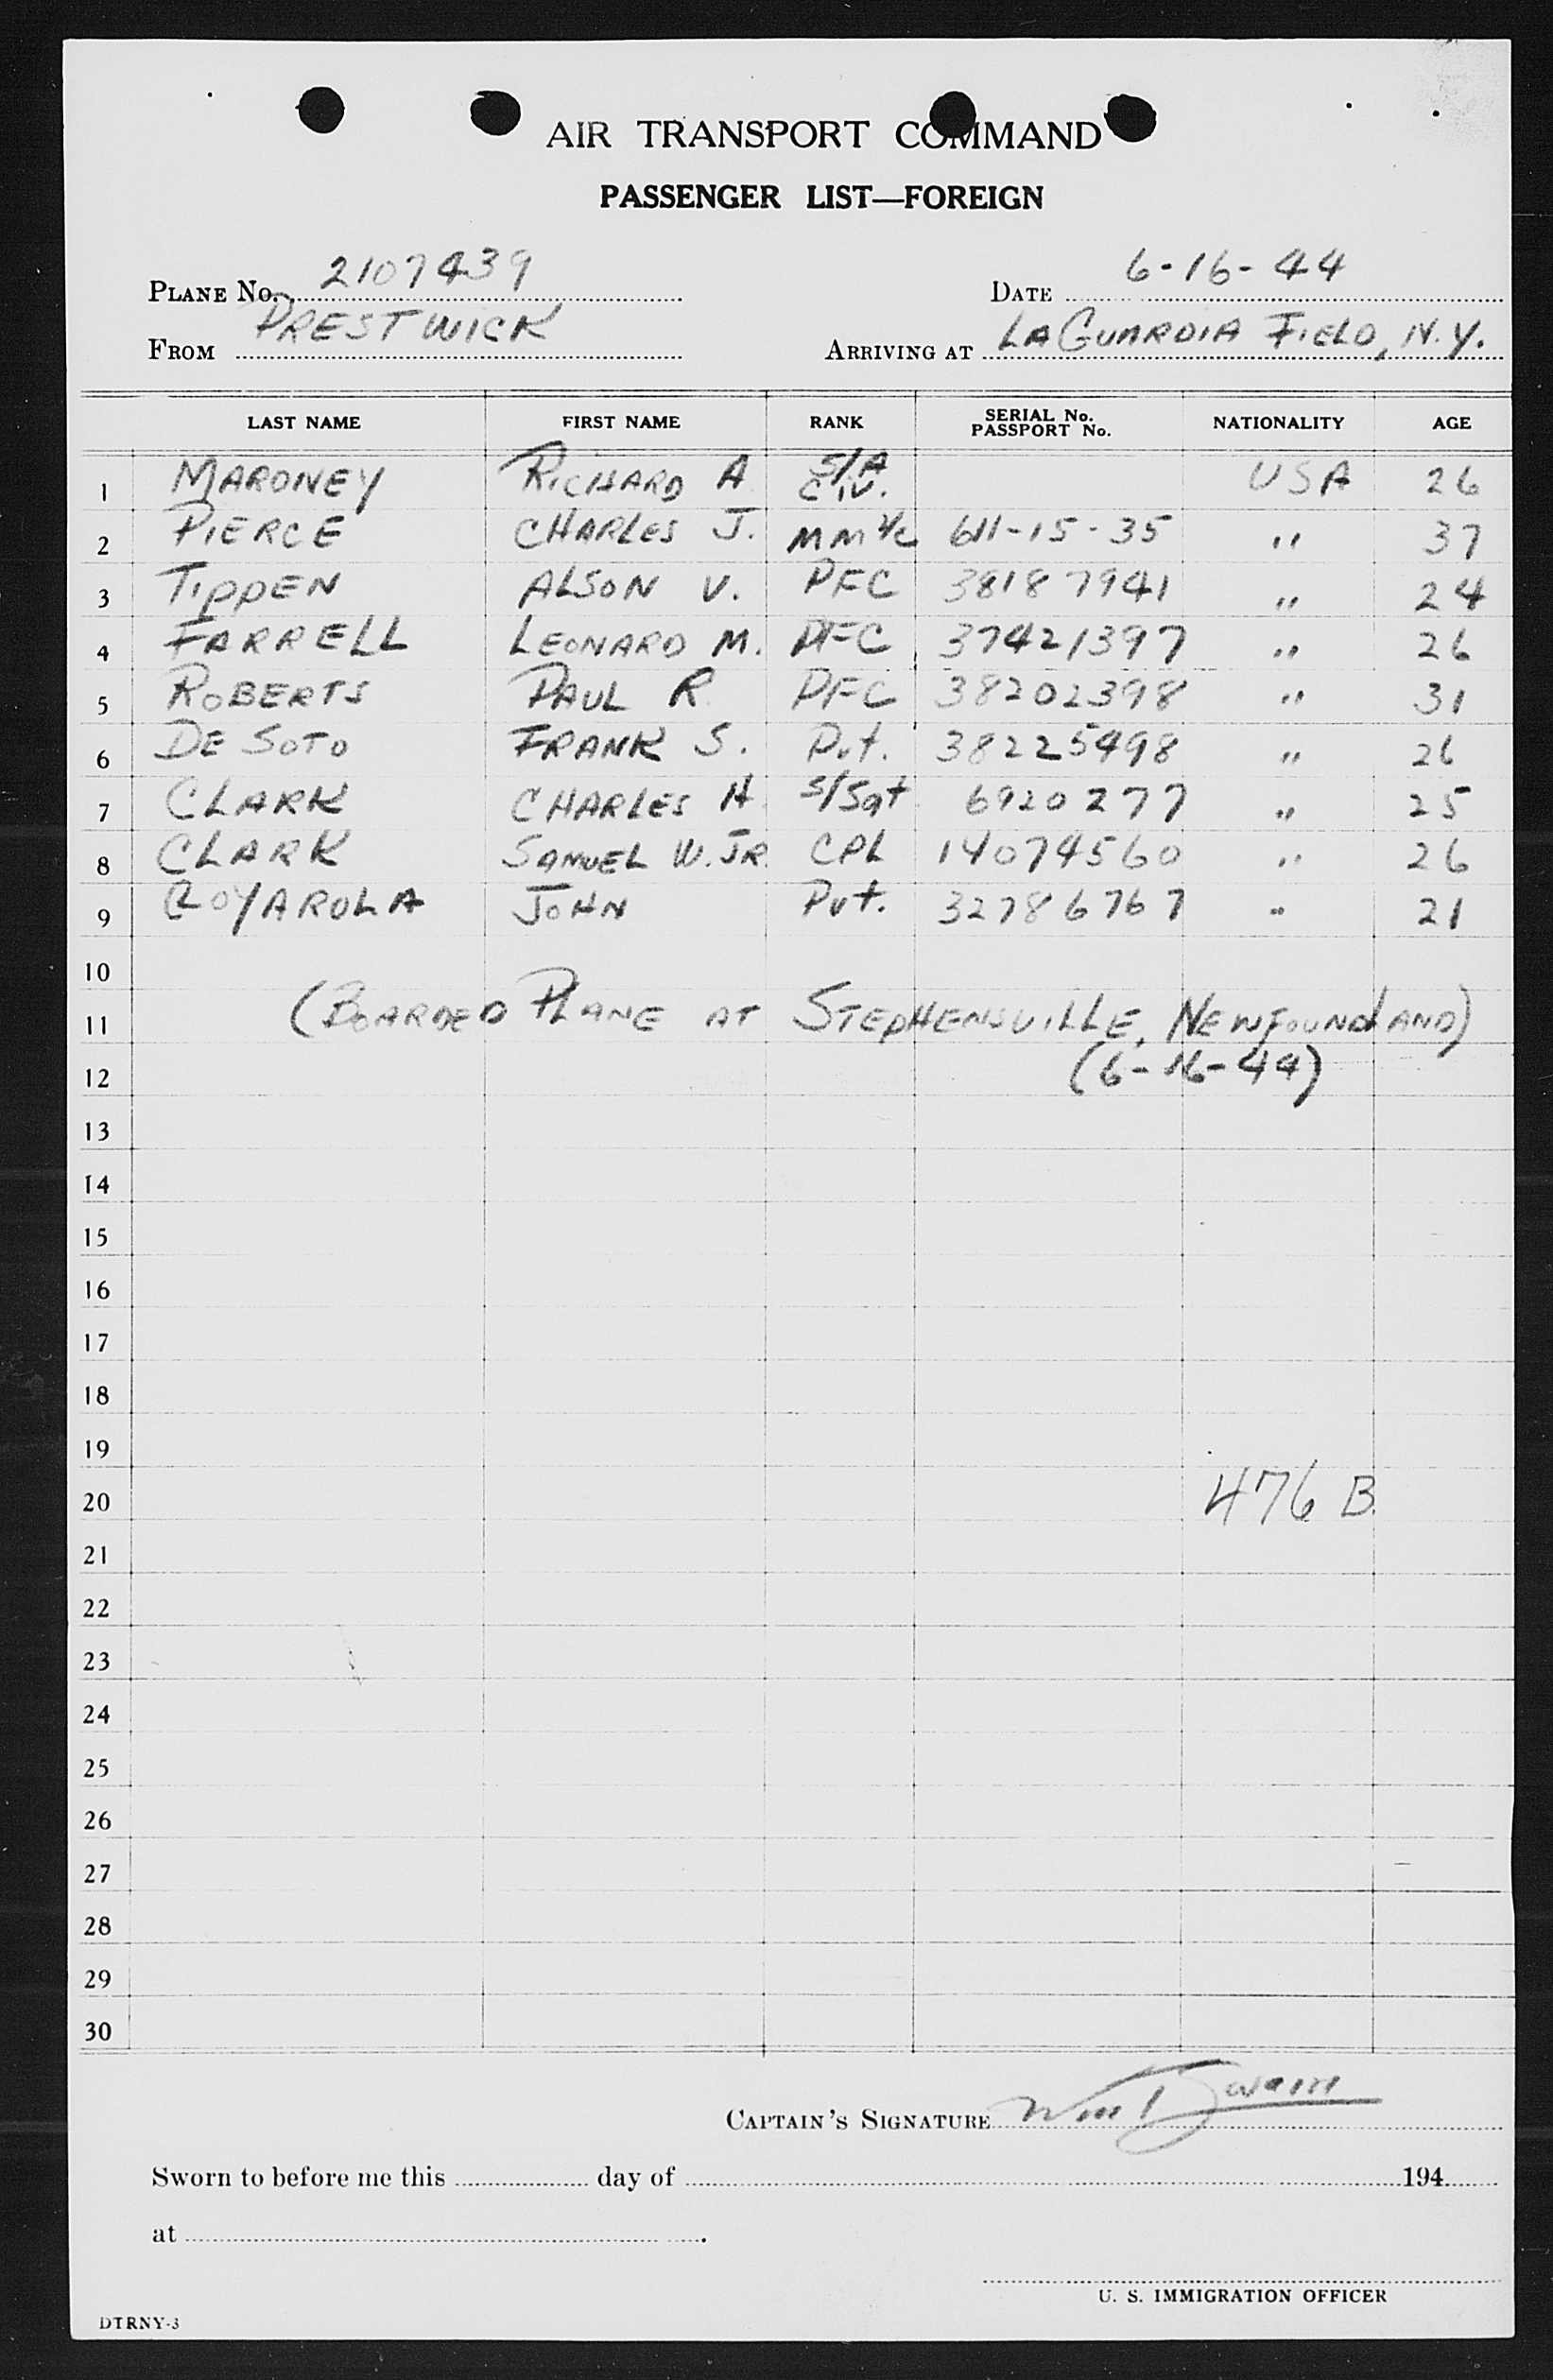 AIR TRANSPORT COMMAND
PASSENGER LIST—FOREIGN
PLANE No. 2107439 DATE 6-16-44
FROM PRESTWICK ARRIVING AT LAGUARDIA FIELD, N.Y.
LAST NAME FIRST NAME RANK SERIAL No. PASSPORT No. NATIONALITY AGE
1 MARONEY RICHARD A S/A CIV. USA 26
2 PIERCE CHARLES J. MM 611-15-35 " 37
3 TIPPEN ALSON V. PFC 38187941 " 24
4 FARRELL LEONARD M. PFC 37421397 " 26
5 ROBERTS PAUL R PFC 38202398 " 31
6 DE SOTO FRANK S. Pvt. 38225498 " 26
7 CLARK CHARLES H S/Sgt 6920277 " 25
8 CLARK SAMUEL W. JR. CPL 14074560 " 26
9 JOHN Pvt. 32786767 " 21
10
11 (BOARDED PLANE AT STEPHENSVILLE, NEWFOUNDLAND)
12 (6-16-44)
13
14
15
16
17
18
19
20 476 B.
21
22
23
24
25
26
27
28
29
30
CAPTAIN'S SIGNATURE Wm Swain
Sworn to before me this day of 194
at .
U. S. IMMIGRATION OFFICER
DTRNY-3